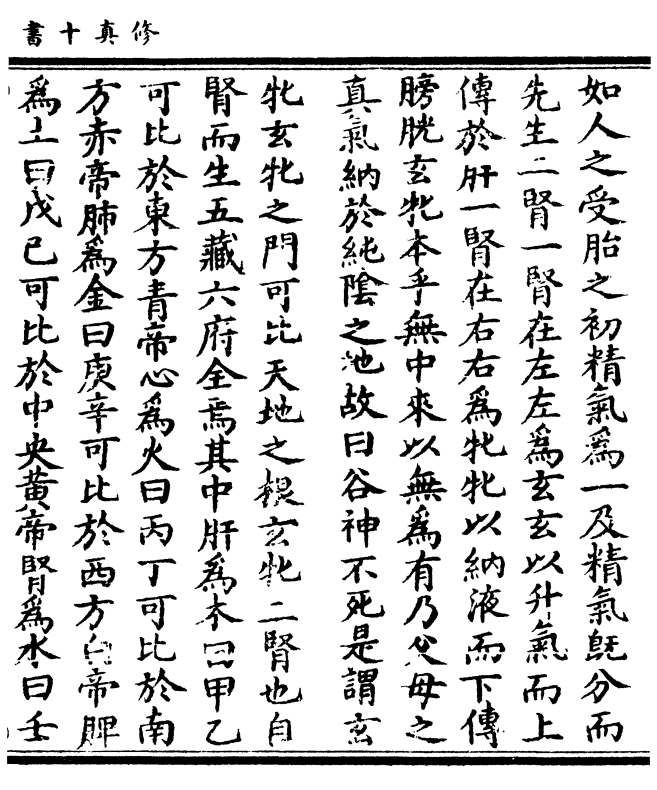 修真十書
如人之受胎之初精氣爲一及精氣旣分而
先生二腎一腎在左左爲玄玄以升氣而上
傳於肝一腎在右右爲牝牝以納液而下傳
膀胱玄牝本乎無中來以無爲有乃父母之
真氣納於純陰之地故曰谷神不死是謂玄
牝玄牝之門可比天地之根玄牝二腎也自
腎而生五藏六府全焉其中肝爲木曰甲乙
可比於東方青帝心爲火曰丙丁可比於南
方赤帝肺爲金曰庚辛可比於西方白帝脾
爲土曰戊己可比於中央黃帝腎爲水曰壬